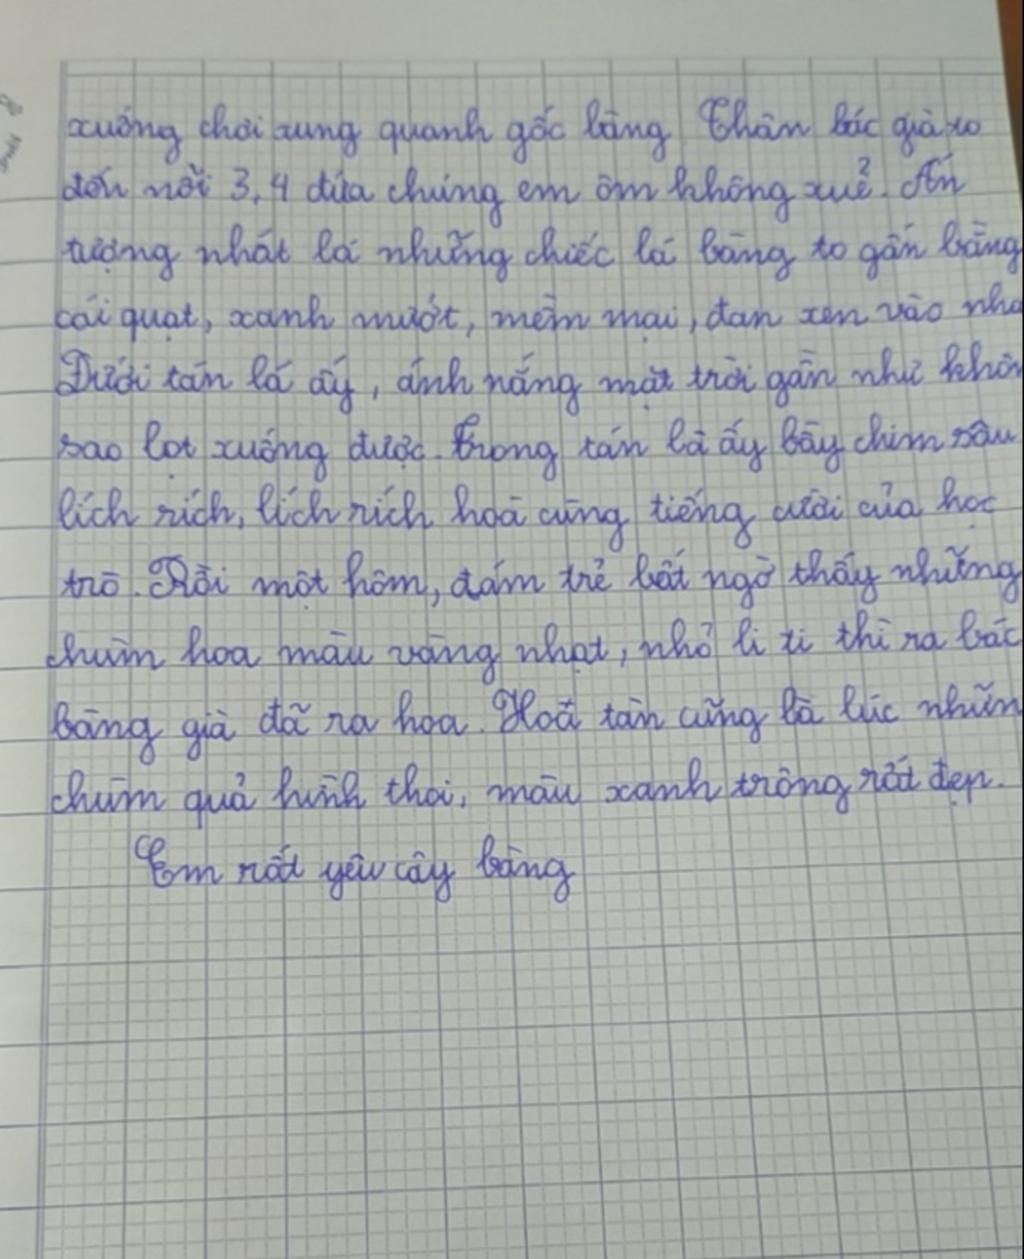 xuống chơi xung quanh gốc bàng Thân bác già to
đến nỗi 3, 4 đứa chúng em ôm không xuể. Ấn
tượng nhất là những chiếc lá bàng to gần bằng
cái quạt, xanh mướt, mềm mại, đan xen vào nha
Dưới tán lá ấy, ánh nắng mặt trời gần như khôn
sao lọt xuống được. Trong tán lá ấy bầy chim sâu
lích rích, lích rích hoà cùng tiếng cười của học
trò. Rồi một hôm, đám trẻ bất ngờ thấy những
chùm hoa màu vàng nhạt, nhỏ li ti thì ra bác
bàng già đã ra hoa. Hoa tàn cũng là lúc nhữn
chùm quả hình thoi, màu xanh trông rất đẹp.
Em rất yêu cây bàng